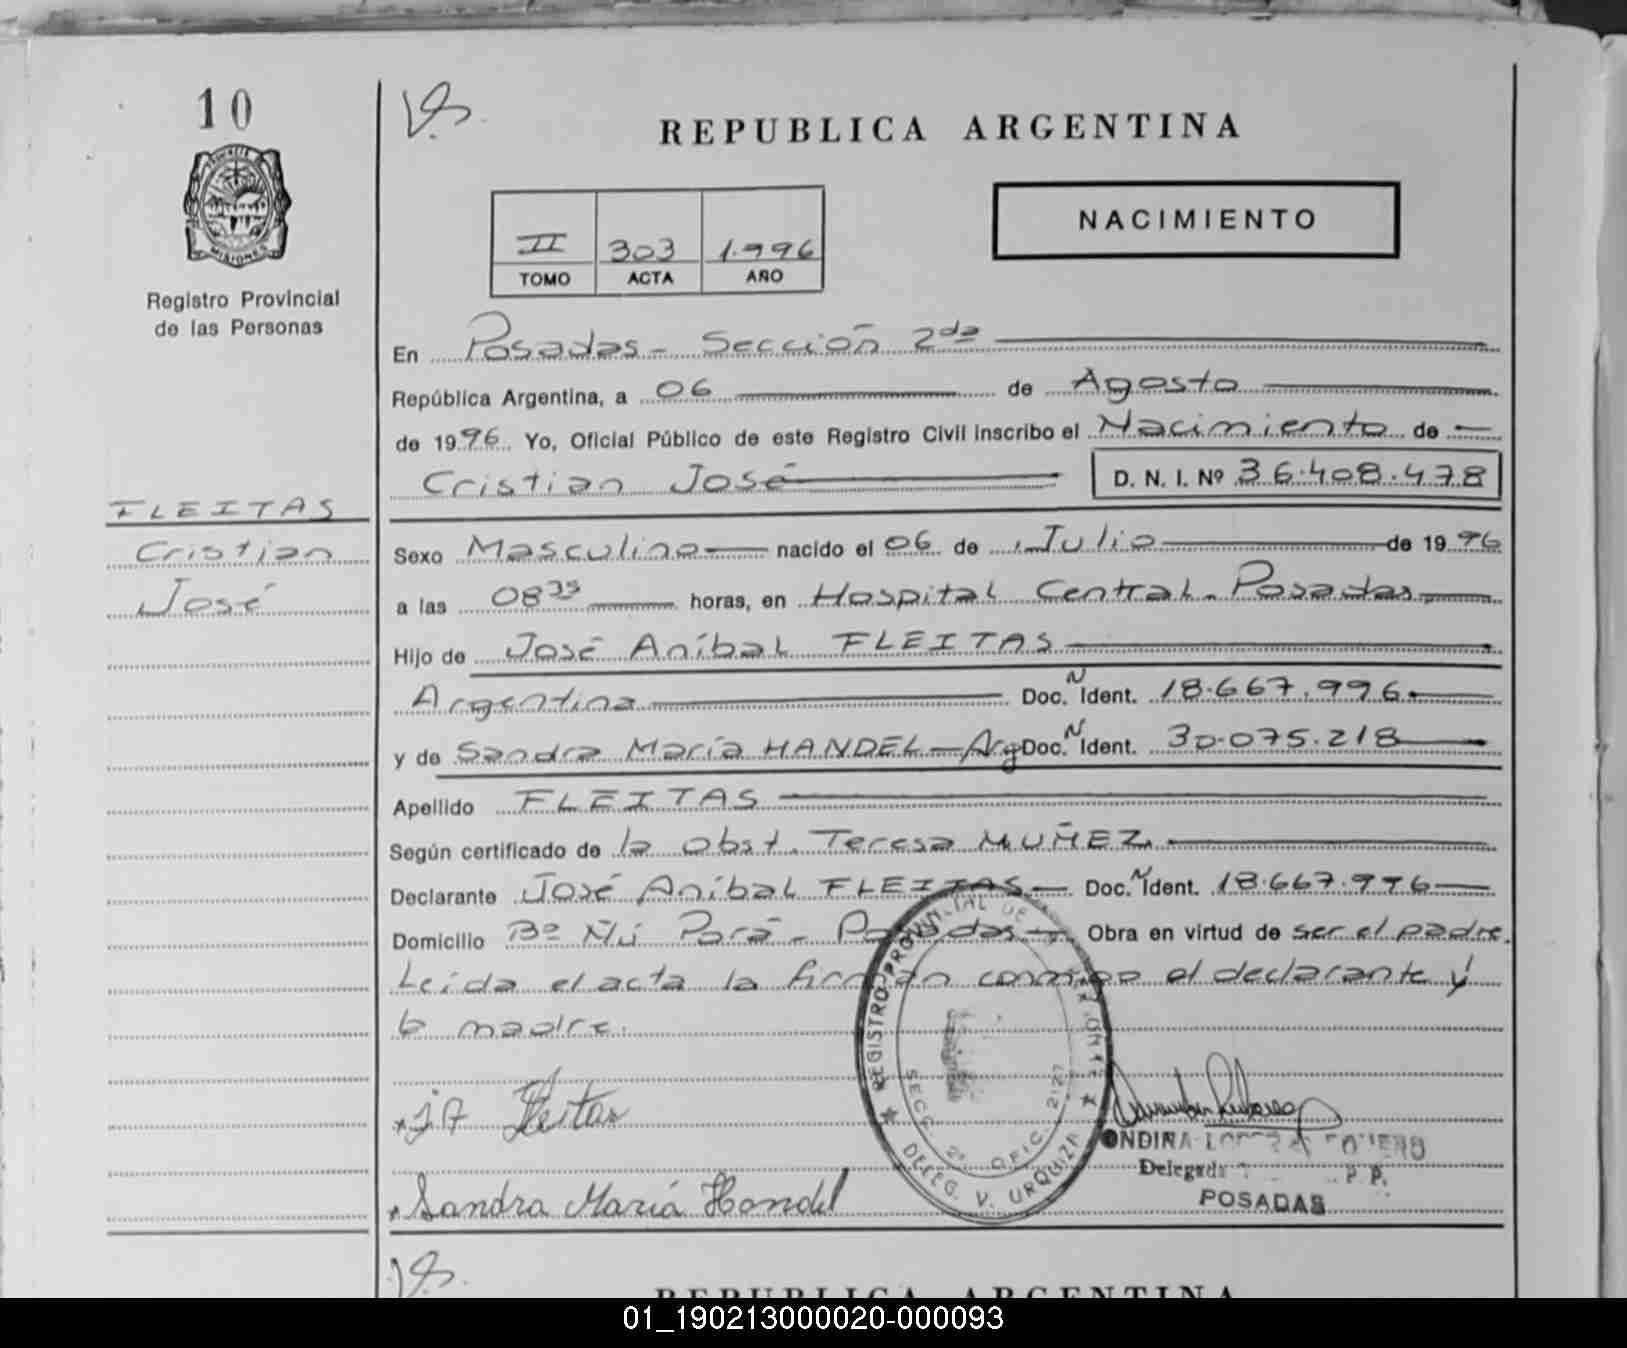 10
PROVINCIA DE
MISIONES
Registro Provincial
de las Personas
FLEITAS
Cristian
José
REPUBLICA ARGENTINA
II 303 1.996
TOMO ACTA AÑO
NACIMIENTO
En Posadas - Sección 2da
República Argentina, a 06 de Agosto
de 1996 Yo, Oficial Público de este Registro Civil inscribo el Nacimiento de
Cristian José D. N. I. Nº 36.408.478
Sexo Masculino nacido el 06 de Julio de 1996
a las 08 35 horas, en Hospital Central. Posadas
Hijo de José Aníbal FLEITAS
Argentina Doc. N Ident. 18.667.996
y de Sandra María HANDEL - Arg Doc. N Ident. 30.075.218
Apellido FLEITAS
Según certificado de la obst. Teresa MUÑEZ
Declarante José Aníbal FLEITAS Doc. N Ident. 18.667.996
Domicilio Bº Ñú Porá - Posadas Obra en virtud de ser el padre.
Leída el acta la firman conmigo el declarante y
la madre.
JA Fleitas
Sandra María Handel
REGISTRO PROVINCIAL DE
SECC. 2ª OFIC. 2127
DELEG. V. URQUIZA
ONDINA
Delegada P. P.
POSADAS
REPUBLICA ARGENTINA
01_190213000020-000093